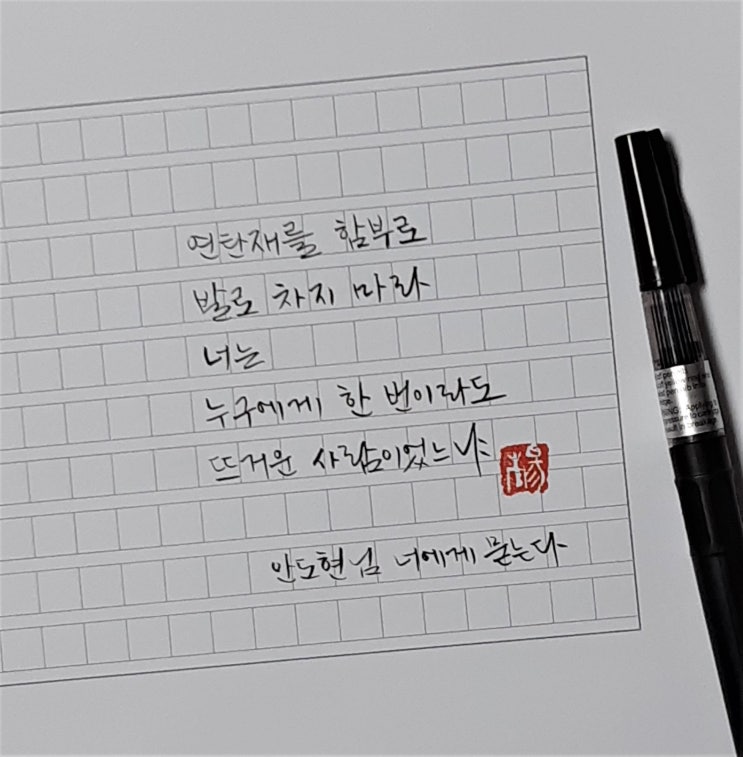 연탄재를 함부로
발로 차지 마라
너는
누구에게 한 번이라도
뜨거운 사람이었느냐
안도현님 너에게 묻는다